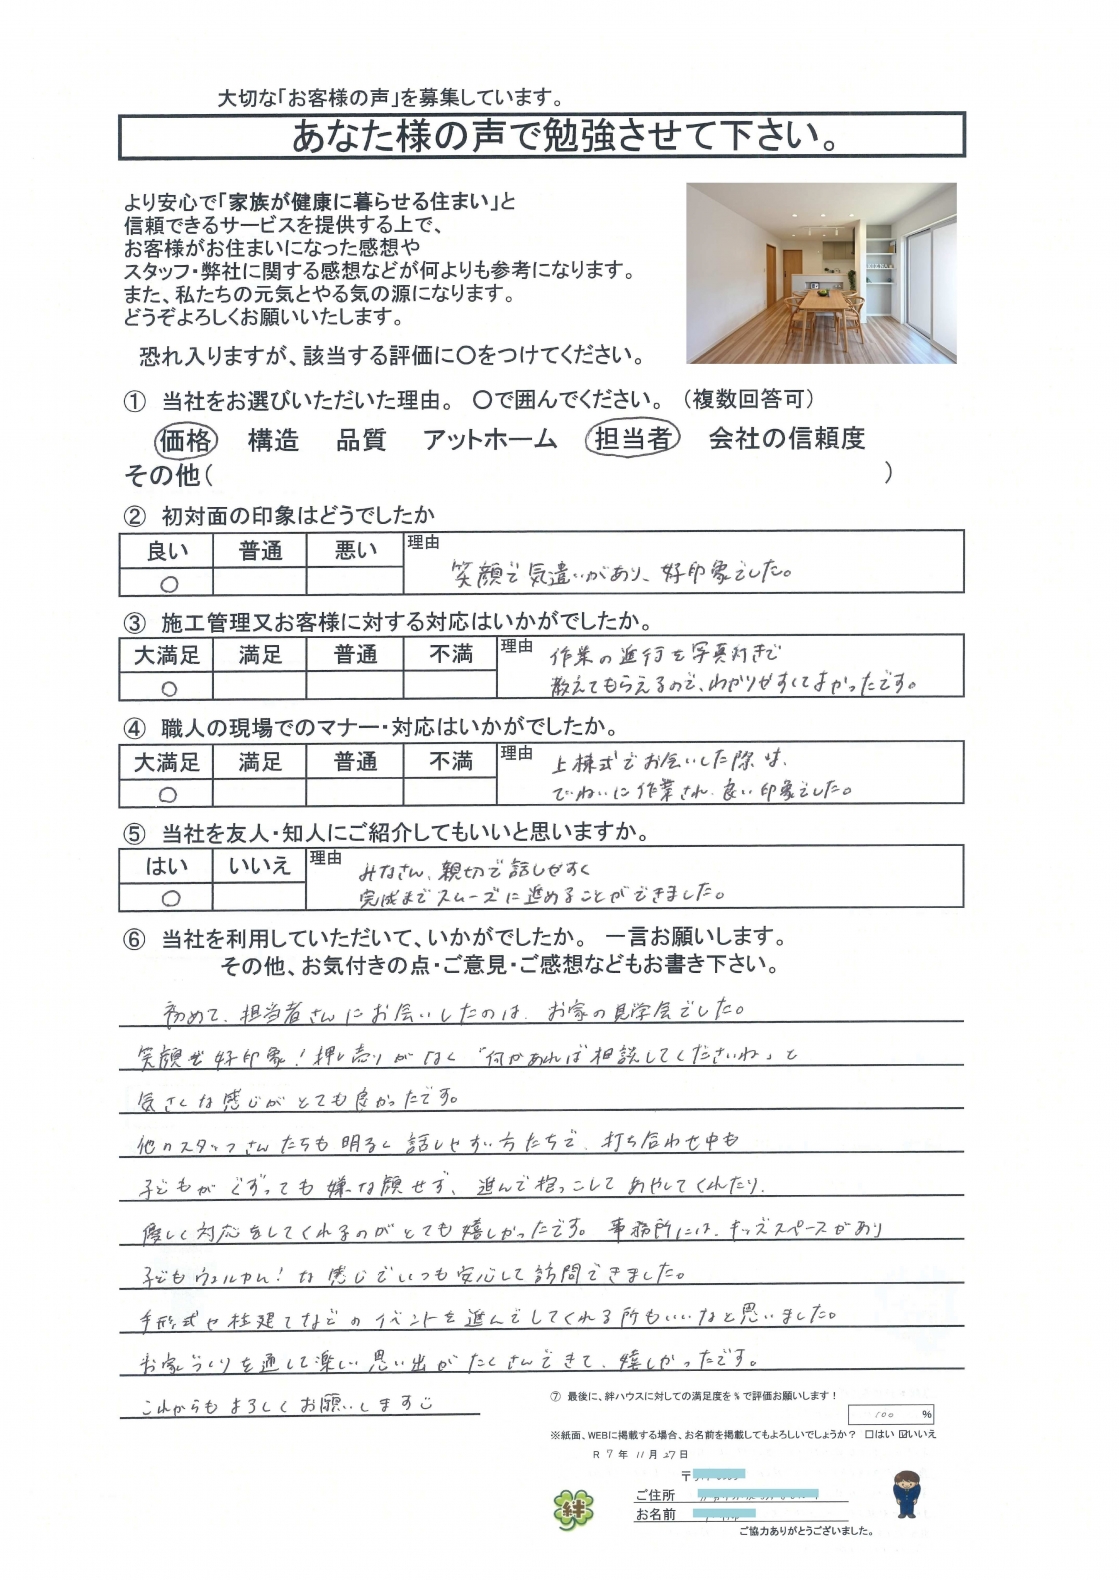 大切な「お客様の声」を募集しています。
あなた様の声で勉強させて下さい。
より安心で「家族が健康に暮らせる住まい」と
信頼できるサービスを提供する上で、
お客様がお住まいになった感想や
スタッフ・弊社に関する感想などが何よりも参考になります。
また、私たちの元気とやる気の源になります。
どうぞよろしくお願いいたします。
恐れ入りますが、該当する評価に〇をつけてください。
① 当社をお選びいただいた理由。 〇で囲んでください。 （複数回答可）
価格 構造 品質 アットホーム 担当者 会社の信頼度
その他（ ）
② 初対面の印象はどうでしたか
良い 普通 悪い 理由
○ 笑顔で気遣いがあり、好印象でした。
③ 施工管理又お客様に対する対応はいかがでしたか。
大満足 満足 普通 不満 理由 作業の進行を写真付きで
○ 教えてもらえるので、わかりやすくてよかったです。
④ 職人の現場でのマナー・対応はいかがでしたか。
大満足 満足 普通 不満 理由 上棟式でお会いした際は、
○ ていねいに作業され、良い印象でした。
⑤ 当社を友人・知人にご紹介してもいいと思いますか。
はい いいえ 理由 みなさん、親切で話しやすく
○ 完成までスムーズに進めることができました。
⑥ 当社を利用していただいて、いかがでしたか。 一言お願いします。
その他、お気付きの点・ご意見・ご感想などもお書き下さい。
初めて、担当者さんにお会いしたのは、お家の見学会でした。
笑顔が好印象！押し売りがなく「何かあれば相談してくださいね」と
気さくな感じがとても良かったです。
他のスタッフさんたちも明るく話しやすい方たちで、打ち合わせ中も
子どもがぐずっても嫌な顔せず、進んで抱っこしてあやしてくれたり、
優しく対応をしてくれるのがとても嬉しかったです。事務所には、キッズスペースがあり
子どもウェルカム！な感じでいつも安心して訪問できました。
手形式や柱建てなどのイベントを進んでしてくれる所もいいなと思いました。
お家づくりを通して楽しい思い出がたくさんできて、嬉しかったです。
これからもよろしくお願いします
⑦ 最後に、絆ハウスに対しての満足度を％で評価お願いします！
100 %
※紙面、WEBに掲載する場合、お名前を掲載してもよろしいでしょうか？ □はい ☑いいえ
R 7 年 11 月 27 日
〒
ご住所
絆
お名前
ご協力ありがとうございました。